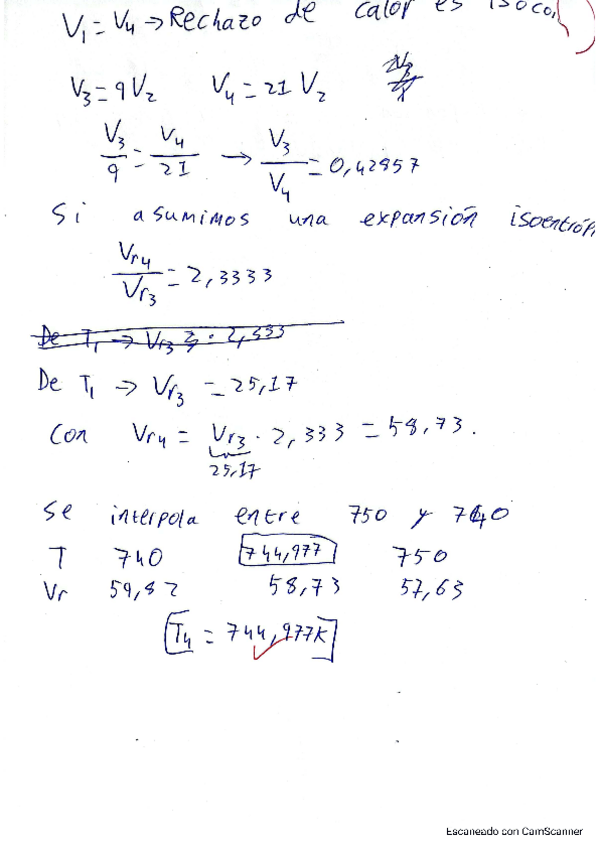 V1 = V4 → Rechazo de calor es isoco
V3 = 9 V2 V4 = 21 V2
V3/9 = V4/21 → V3/V4 = 0,42857
Si asumimos una expansión isoentróp
Vr4/Vr3 = 2,3333
De T1 → Vr3 3 = 2,333
De T1 → Vr3 = 25,17
Con Vr4 = Vr3 · 2,333 = 58,73.
25,17
Se interpola entre 750 y 740
T 740 744,977 750
Vr 59,82 58,73 57,63
T4 = 744,977K
Escaneado con CamScanner